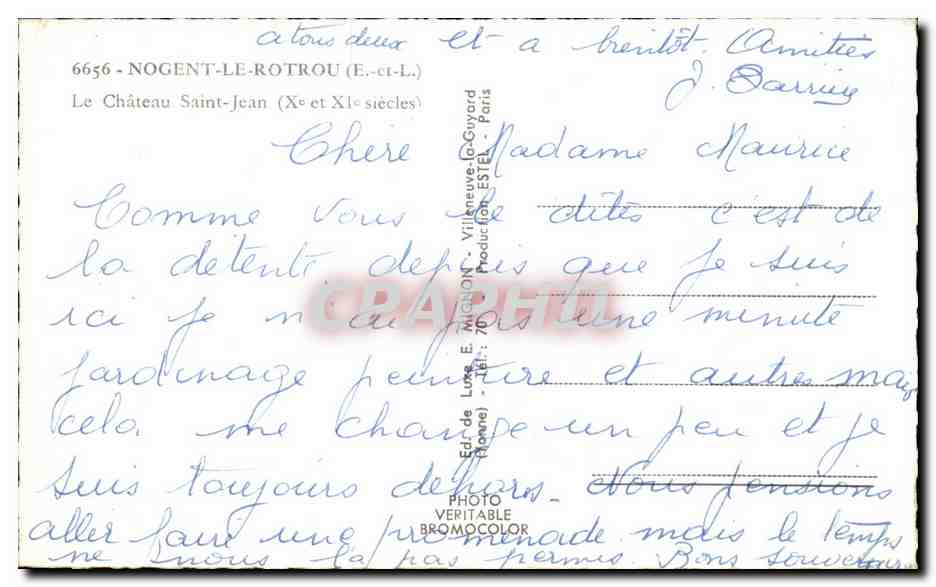 a tous deux et a bientôt. Amitiés
6656 - NOGENT-LE-ROTROU (E.-et-L.)
Le Château Saint-Jean (Xe et XIe siècles)
Chère Madame Maurice
Comme vous le dites c'est de
la détente depuis que je suis
ici je n'ai pas une minute
jardinage peinture et autres mais
cela me change un peu et je
suis toujours dehors - Nous pensions
aller faire une promenade mais le temps
ne nous l'a pas permis. Bons souvenirs
Ed. de Luxe E. MIGNON - Villeneuve-la-Guyard
(Yonne) - Tél. : 70 - Production ESTEL - Paris
PHOTO
VERITABLE
BROMOCOLOR
CPAPHIL